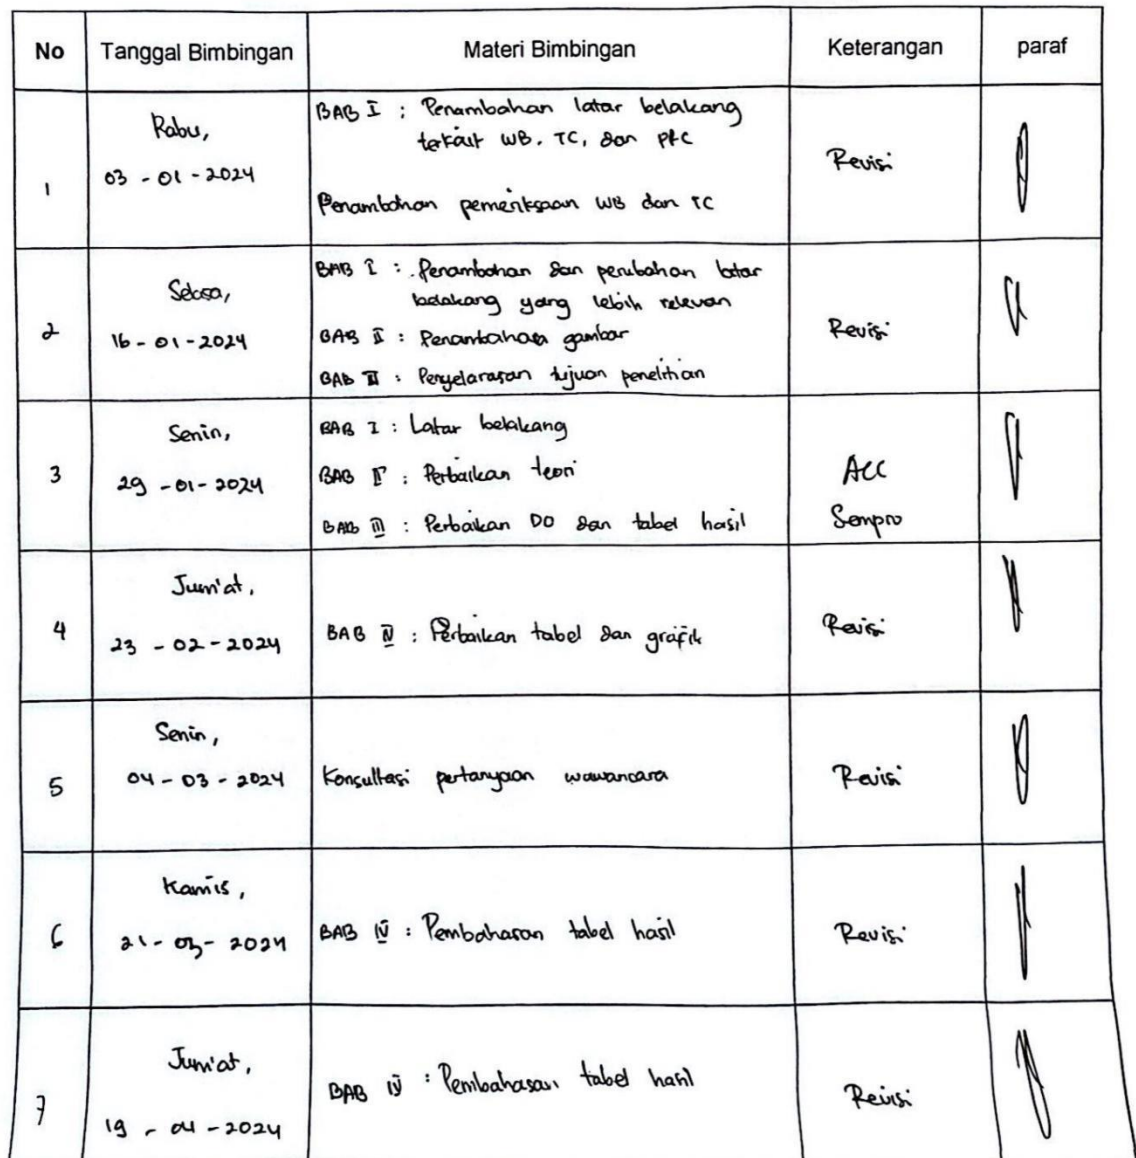 No Tanggal Bimbingan Materi Bimbingan Keterangan paraf
1
Rabu,
03 - 01 - 2024
BAB I : Penambahan latar belakang
terkait WB, TC, dan PRC
Penambahan pemeriksaan WB dan TC
Revisi
2
Selasa,
16 - 01 - 2024
BAB I : Penambahan dan perubahan latar
belakang yang lebih relevan
BAB II : Penambahan gambar
BAB III : Penyelarasan tujuan penelitian
Revisi
3
Senin,
29 - 01 - 2024
BAB I : Latar belakang
BAB II : Perbaikan teori
BAB III : Perbaikan DO dan tabel hasil
ACC
Sempro
4
Jum'at,
23 - 02 - 2024
BAB IV : Perbaikan tabel dan grafik
Revisi
5
Senin,
04 - 03 - 2024
Konsultasi pertanyaan wawancara
Revisi
6
Kamis,
21 - 03 - 2024
BAB IV : Pembahasan tabel hasil
Revisi
7
Jum'at,
19 - 04 - 2024
BAB IV : Pembahasan tabel hasil
Revisi